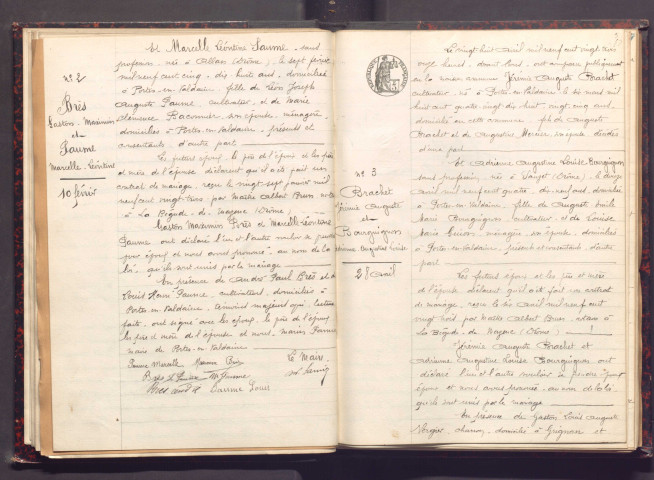 Et Marcelle Léontine Saume, sans
profession, née à Allan (Drôme), le sept février
mil neuf cent cinq, dix huit ans, domiciliée
à Portes-en-Valdaine, fille de Léon Joseph
Auguste Saume, cultivateur, et de Marie
Clémence Raconnier son épouse, ménagère,
domiciliés à Portes-en-Valdaine, présents et
consentants, d'autre part
Les futurs époux, le père de l'époux et les père
et mère de l'épouse déclarent qu'il a été fait un
contrat de mariage, reçu le vingt sept janvier mil
neuf cent vingt trois par Maître Albert Brun notaire
à La Bégude-de-Mazenc (Drôme)
Gaston Maximin Brès et Marcelle Léontine
Saume ont déclaré l'un et l'autre vouloir se prendre
pour époux et nous avons prononcé au nom de la
loi qu'ils sont unis par le mariage
En présence de André Paul Brès et de
Louis Henri Saume, cultivateurs, domiciliés à
Portes-en-Valdaine, témoins majeurs qui, lecture
faite, ont signé avec les époux, le père de l'époux
les père et mère de l'épouse et nous, Marius
maire de Portes-en-Valdaine
Saume Marcelle
Le Maire,
Saume Louis
N° 2
Brès
Gaston-Maximin
et
Saume
Marcelle-Léontine
10 février
N° 3
Brachet
Jérémie Auguste
et
Bourguignon
Adrienne Augustine Louise
28 avril
3
Le vingt huit avril mil neuf cent vingt trois
onze heures, devant nous, ont comparu publiquement
en la maison commune Jérémie Auguste Brachet
cultivateur, né à Portes-en-Valdaine le six mars mil
huit cent quatre-vingt dix huit, vingt cinq ans,
domicilié en cette commune, fils de Auguste
Brachet et de Augustine Mercier, son épouse, décédés
d'une part
Et Adrienne Augustine Louise Bourguignon
sans profession, née à Sauzet (Drôme) le douze
avril mil neuf cent quatre, dix-neuf ans, domiciliée
à Portes-en-Valdaine, fille de Auguste Émile
Bourguignon, cultivateur, et de Louise
Marie Guion, ménagère, son épouse, domiciliés
à Portes-en-Valdaine, présents et consentants, d'autre
part
Les futurs époux et les père et mère
de l'épouse déclarent qu'il a été fait un contrat
de mariage, reçu le six avril mil neuf cent
vingt trois par Maître Albert Brun, notaire à
La Bégude-de-Mazenc (Drôme)
Jérémie Auguste Brachet et
Adrienne Augustine Louise Bourguignon ont
déclaré l'un et l'autre vouloir se prendre pour
époux et nous avons prononcé au nom de la loi
qu'ils sont unis par le mariage
En présence de Gaston Louis Auguste
Vergier, charron, domicilié à Grignan et